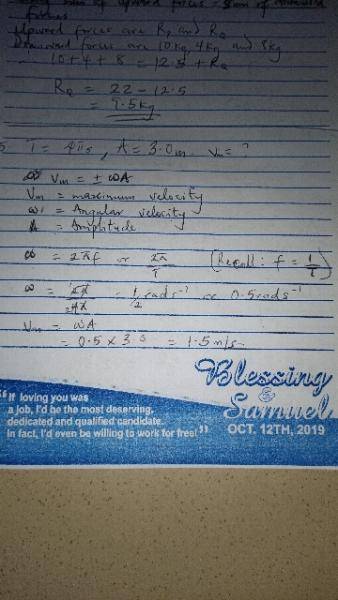 sum of upward forces = Sum of downward
forces
Upward forces are Rp and RQ
Downward forces are 10kg, 4kg and 8kg
10 + 4 + 8 = 12.5 + RQ
RQ = 22 - 12.5
= 9.5kg
T = 4πs, A = 3.0m. Vm = ?
Vm = ± ωA
Vm = maximum velocity
ω = Angular velocity
A = Amplitude
ω = 2πf or 2π/T (Recall: f = 1/T)
ω = 2π/4π = 1/2 rads⁻¹ or 0.5rads⁻¹
Vm = ωA
= 0.5 x 3 = 1.5m/s
Blessing
&
Samuel
OCT. 12TH, 2019
“If loving you was
a job, I'd be the most deserving,
dedicated and qualified candidate.
In fact, I'd even be willing to work for free!”